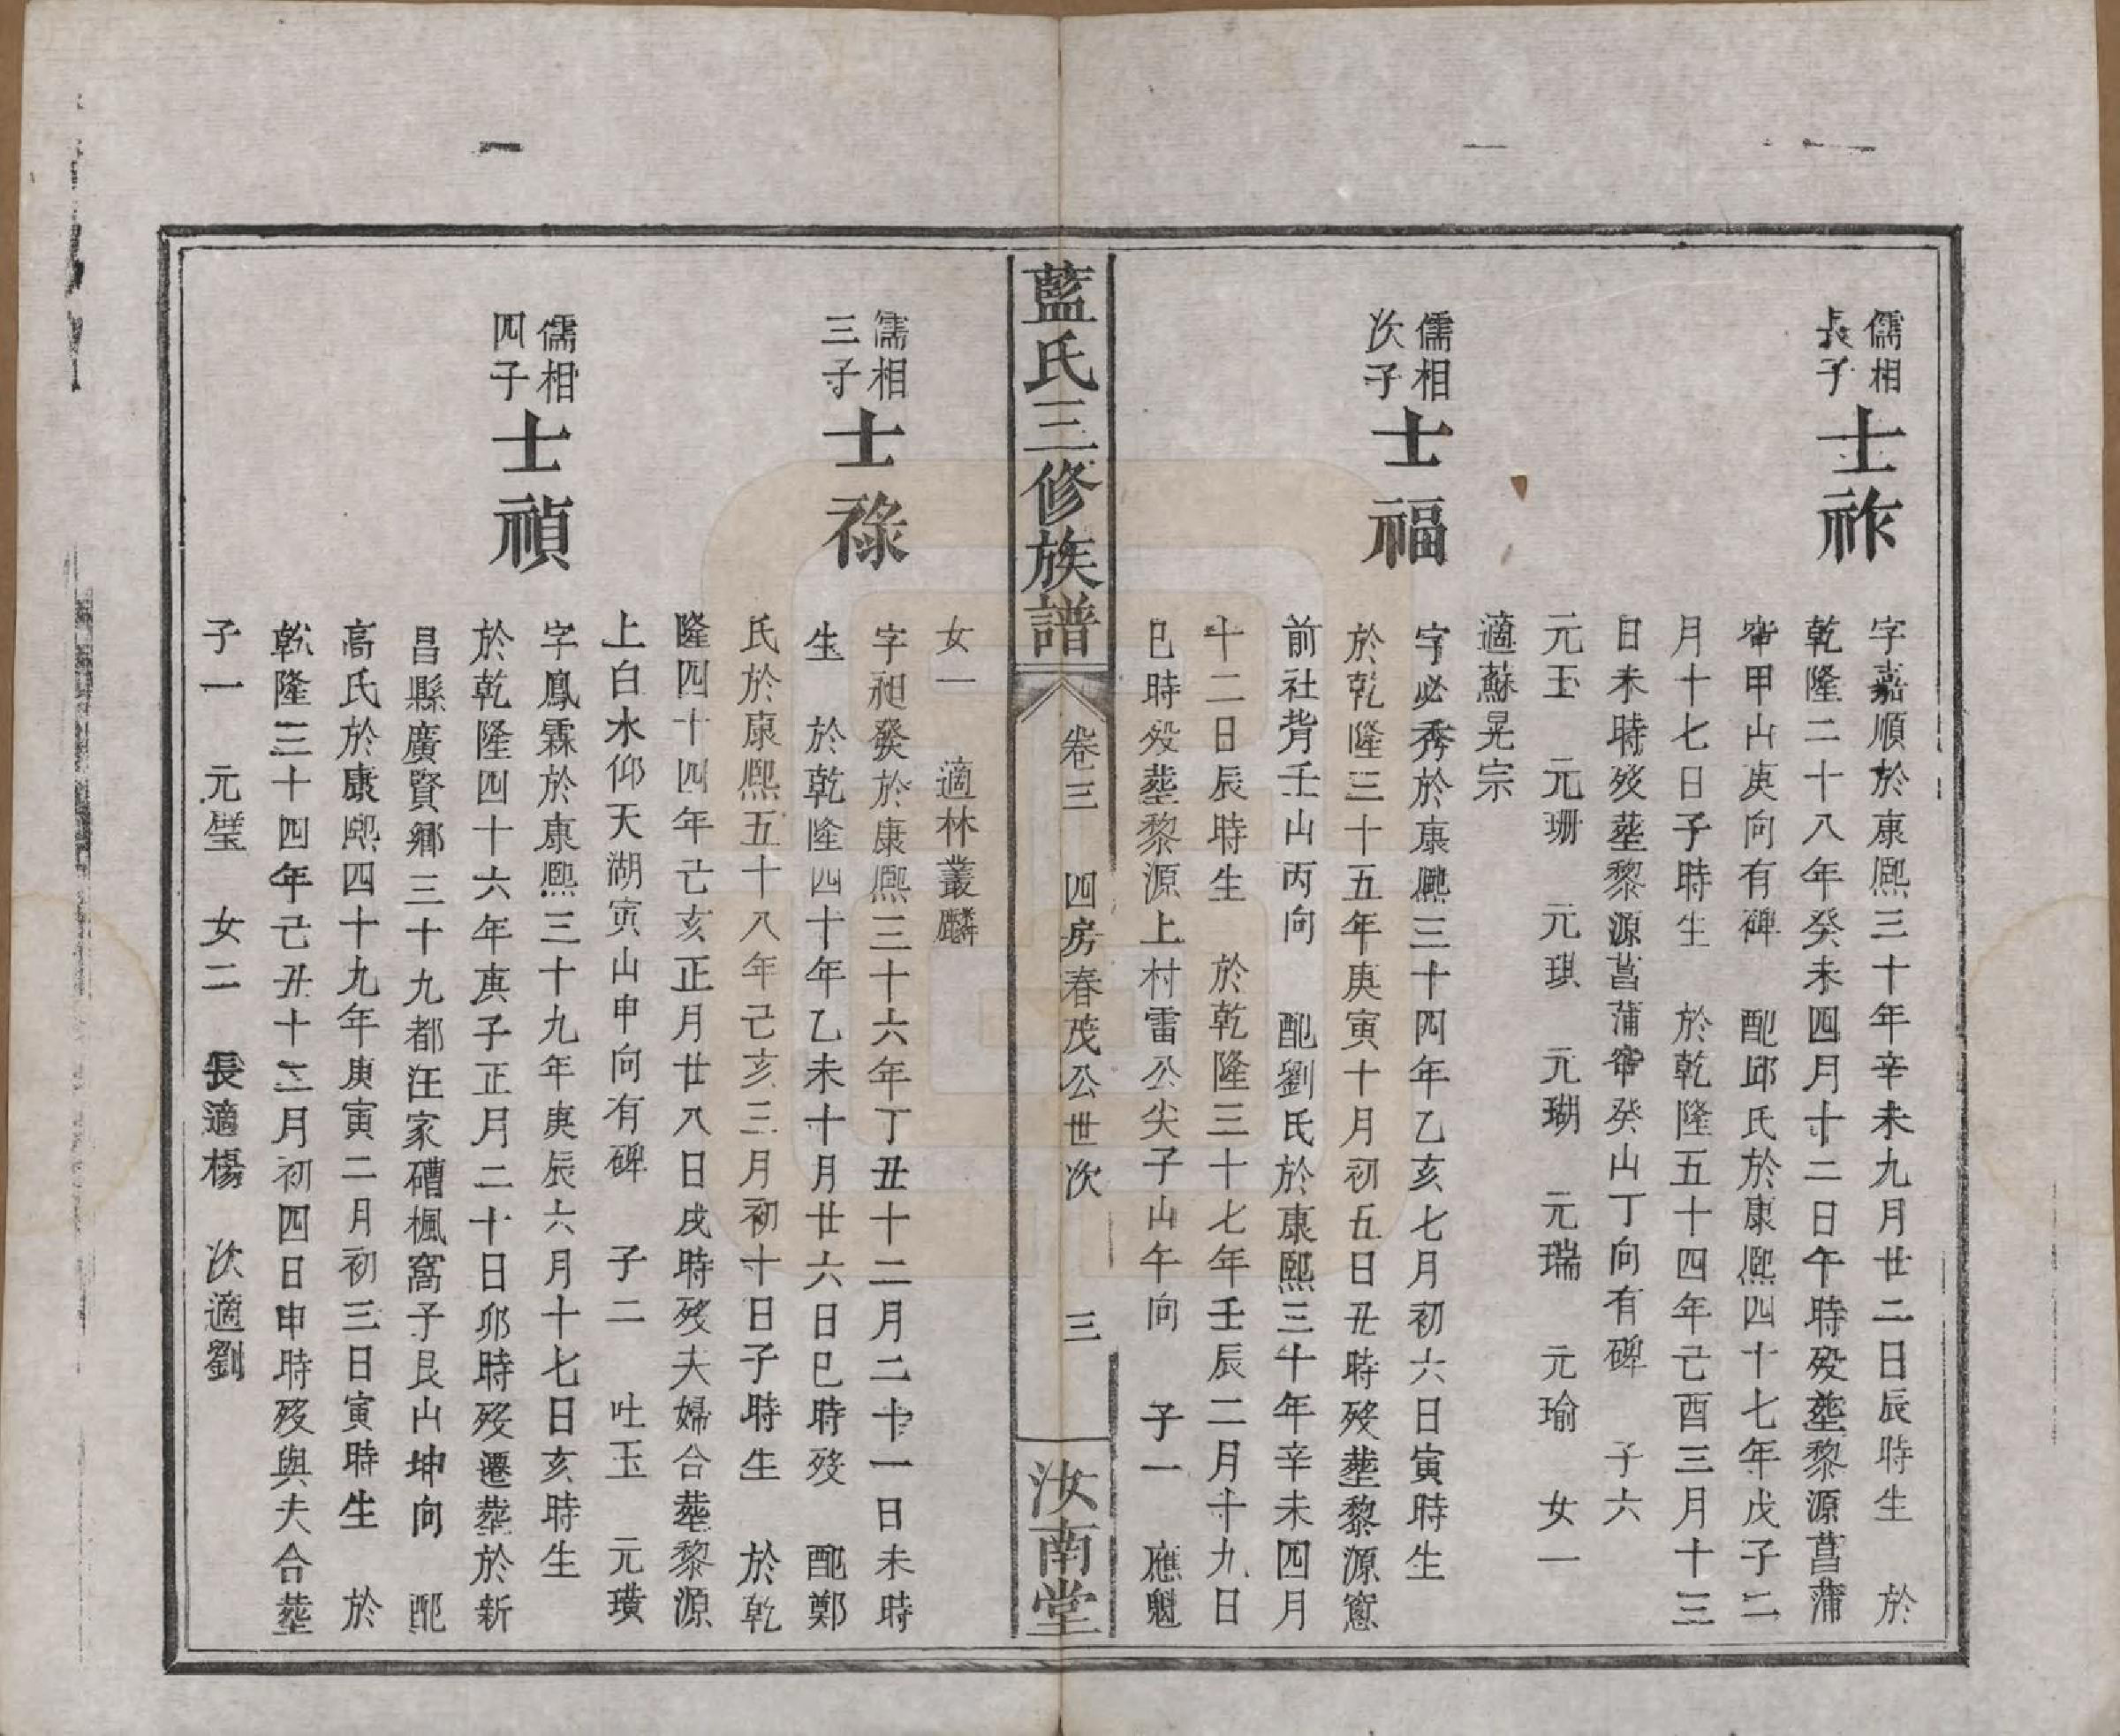 儒相
長子
士祚
字嘉順於康熈三十年辛未九月廿二日辰時生　於
乾隆二十八年癸未四月十二日午時歿塟黎源菖蒲
甲山庚向有碑　配邱氏於康熈四十七年戊子二
月十七日子時生　於乾隆五十四年己酉三月十三
日未時歿塟黎源菖蒲癸山丁向有碑　子六
元玉　元珊　元琪　元瑚　元瑞　元瑜　女一
適蘇晃宗
儒相
次子
士福
字必秀於康熈三十四年乙亥七月初六日寅時生
於乾隆三十五年庚寅十月初五日丑時歿塟黎源窻
前社背壬山丙向　配劉氏於康熙三十年辛未四月
十二日辰時生　於乾隆三十七年壬辰二月十九日
巳時歿塟黎源上村雷公尖子山午向　子一　應魁
藍氏三修族譜
卷三　四房春茂公世次　三
汝南堂
女一　適林叢麟
儒相
三子
士祿
字昶發於康熈三十六年丁丑十二月二十一日未時
生　於乾隆四十年乙未十月廿六日巳時歿　配鄭
氏於康熈五十八年己亥三月初十日子時生　於乾
隆四十四年己亥正月廿八日戌時歿夫婦合塟黎源
上白水仰天湖寅山申向有碑　子二　吐玉　元璜
儒相
四子
士禎
字鳳霖於康熈三十九年庚辰六月十七日亥時生
於乾隆四十六年庚子正月二十日卯時歿遷塟於新
昌縣廣賢鄉三十九都汪家磄楓窩子艮山坤向　配
高氏於康熙四十九年庚寅二月初三日寅時生　於
乾隆三十四年己丑十二月初四日申時歿與夫合塟
子一　元璧　女二　長適楊　次適劉